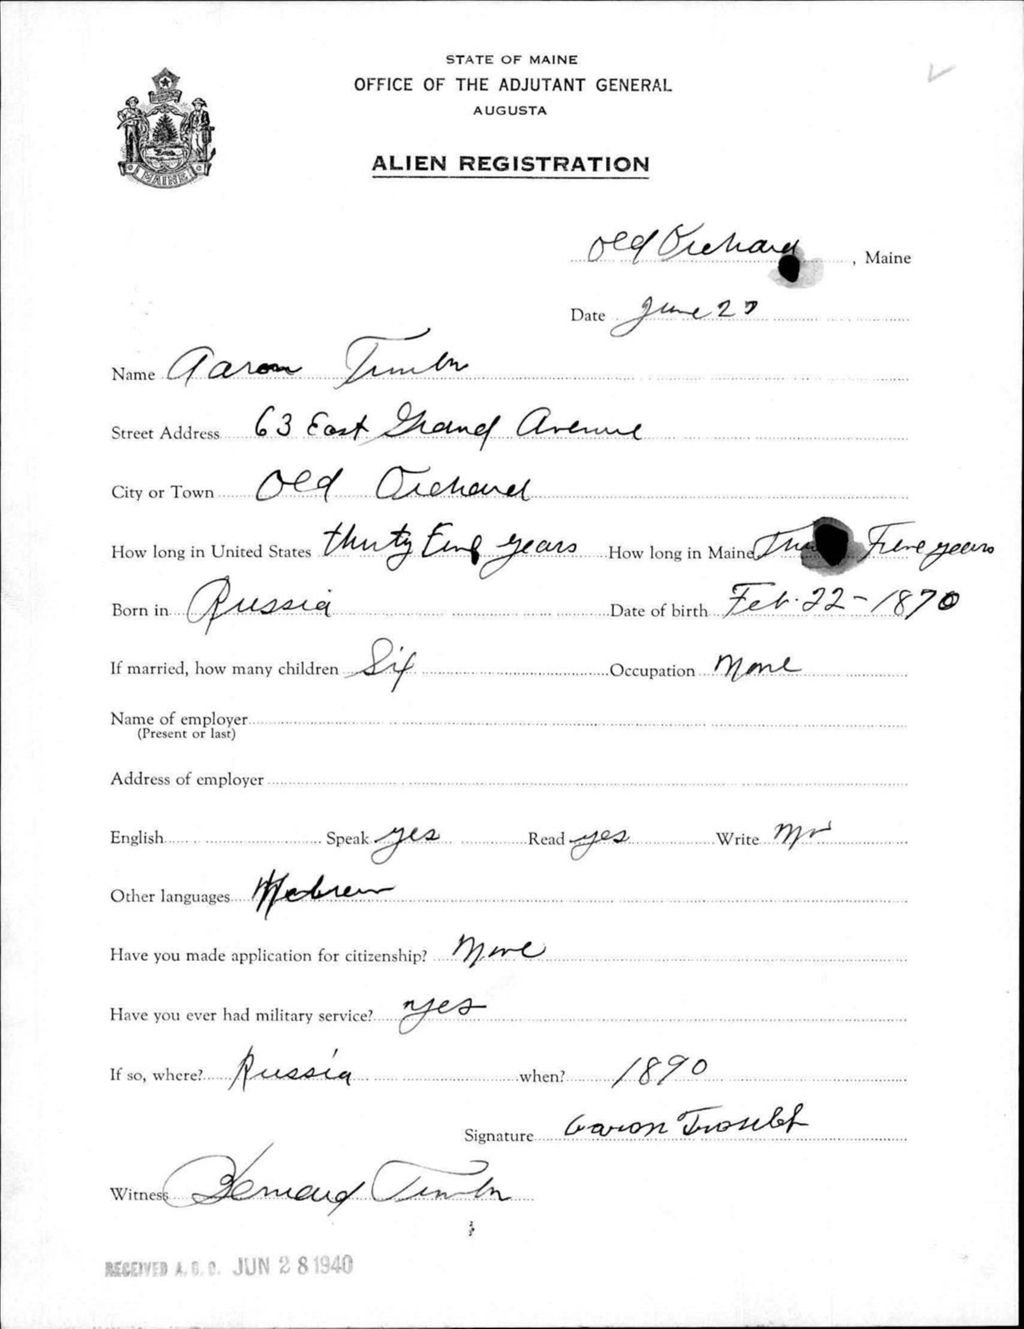 STATE OF MAINE
OFFICE OF THE ADJUTANT GENERAL
AUGUSTA
MAINE
ALIEN REGISTRATION
Old Orchard, Maine
Date June 27
Name Aaron
Street Address 63 East Grand Avenue
City or Town Old Orchard
How long in United States thirty Five years How long in Maine Five years
Born in Russia Date of birth Feb. 22 - 1870
If married, how many children Six Occupation None
Name of employer
(Present or last)
Address of employer
English Speak yes Read yes Write No
Other languages Hebrew
Have you made application for citizenship? None
Have you ever had military service? yes
If so, where? Russia when? 1890
Signature Aaron
Witness Bernard
RECEIVED A. G. O. JUN 28 1940